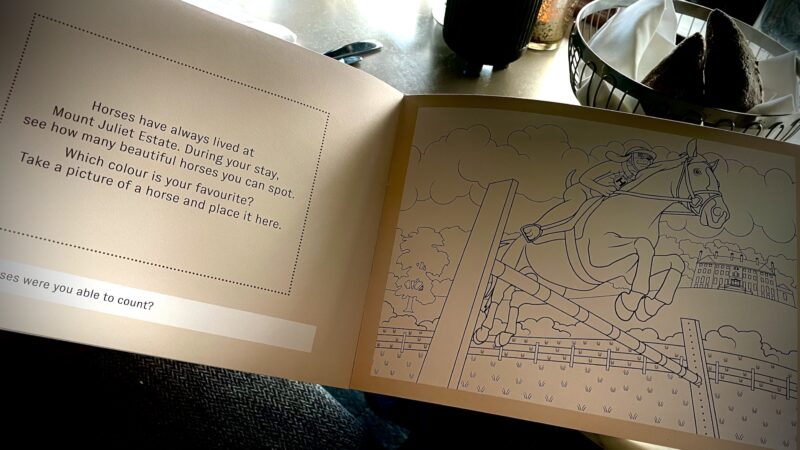 Horses have always lived at
Mount Juliet Estate. During your stay,
see how many beautiful horses you can spot.
Which colour is your favourite?
Take a picture of a horse and place it here.
ses were you able to count?